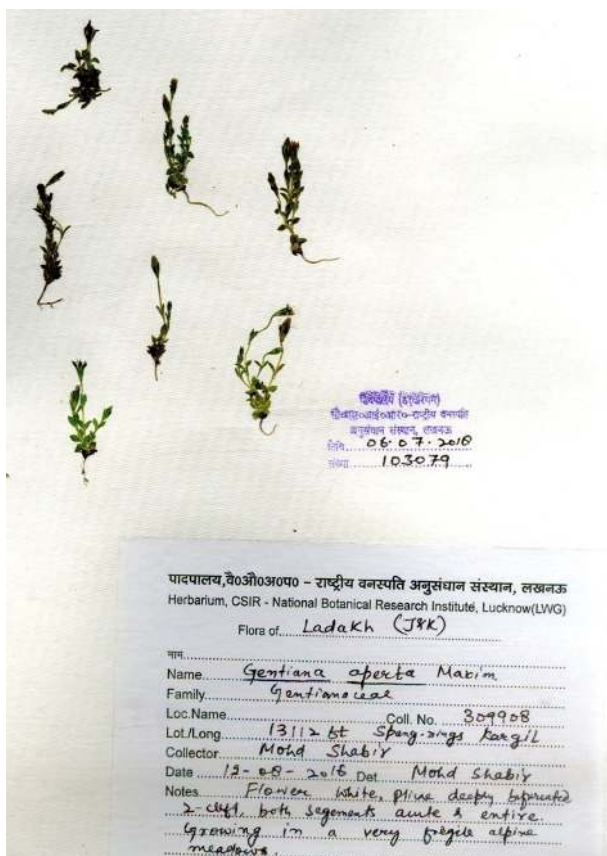 पादपालय (हर्बेरियम)
सी०एस०आई०आर०-राष्ट्रीय वनस्पति
अनुसंधान संस्थान, लखनऊ
तिथि 06.07.2018
संख्या 103079
पादपालय,वै०औ०अ०प० - राष्ट्रीय वनस्पति अनुसंधान संस्थान, लखनऊ
Herbarium, CSIR - National Botanical Research Institute, Lucknow(LWG)
Flora of Ladakh (J&K)
नाम
Name Gentiana aperta Maxim
Family Gentianaceae
Loc.Name Coll. No. 309908
Lot./Long. 13112 ft Kargil
Collector Mohd Shabir
Date 12-08-2016 Det Mohd Shabir
Notes Flower white, deeply
2-cleft, both segements acute & entire.
Growing in a very fregile alpine
meadows.